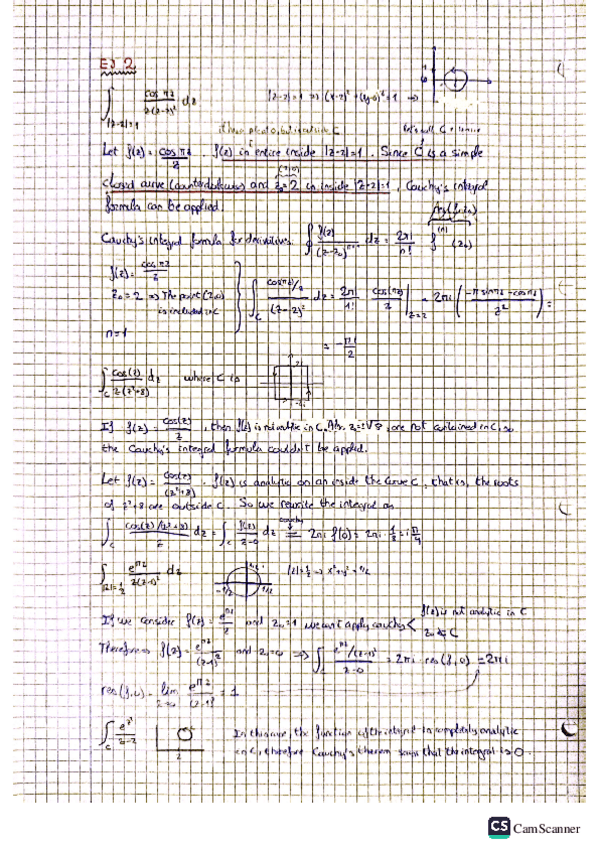 EJ 2
∫|z-2|=1 cos πz / z(z-2)² dz |z-2|=1 ⇒ (x-2)²+(y-0)²=1 ⇒
Let f(z) = cos πz / z . f(z) is entire inside |z-2|=1. Since C is a simple
closed curve (counterclockwise) and z₀=2 is inside |z-2|=1, Cauchy's integral
formula can be applied.
Cauchy's integral formula for derivatives ∮ f(z) / (z-z₀)ⁿ⁺¹ dz = 2πi / n! f⁽ⁿ⁾(z₀)
f(z) = cos πz / z
z₀ = 2 ⇒ The point (2,0) is included in C
n=1
∫C cos πz/z / (z-2)² dz = 2πi / 1! cos(πz) / z |z=2 = 2πi ( -π sin πz - cos πz / z² ) =
= -πi / 2
∫C cos(z) / z(z²+8) dz where C is
If f(z) = cos(z) / z , then f(z) is not analytic in C. are not contained in C, so
the Cauchy's integral formula couldn't be applied.
Let f(z) = cos(z) / (z²+8) . f(z) is analytic on an inside the curve C, that is, the roots
of z²+8 are outside C. So we rewrite the integral as
∫C cos(z)/(z²+8) / z dz = ∫C f(z) / z-0 dz = 2πi f(0) = 2πi · 1/8 = i π/4
∫|z|=½ e^πz / z(z-1)² dz
If we consider f(z) = e^πz / z and z₀=1 we can't apply cauchy < f(z) is not analytic in C
z₀ ∉ C
Therefore f(z) = e^πz / (z-1)² and z₀=0 ⇒ ∫C e^πz/(z-1)² / z-0 = 2πi · res(f,0) = 2πi
res(f,0) = lim z→0 e^πz / (z-1)² = 1
∫C / z-2 In this case, the function of the integral is completely analytic
in C, therefore Cauchy's theorem says that the integral is 0.
CS CamScanner